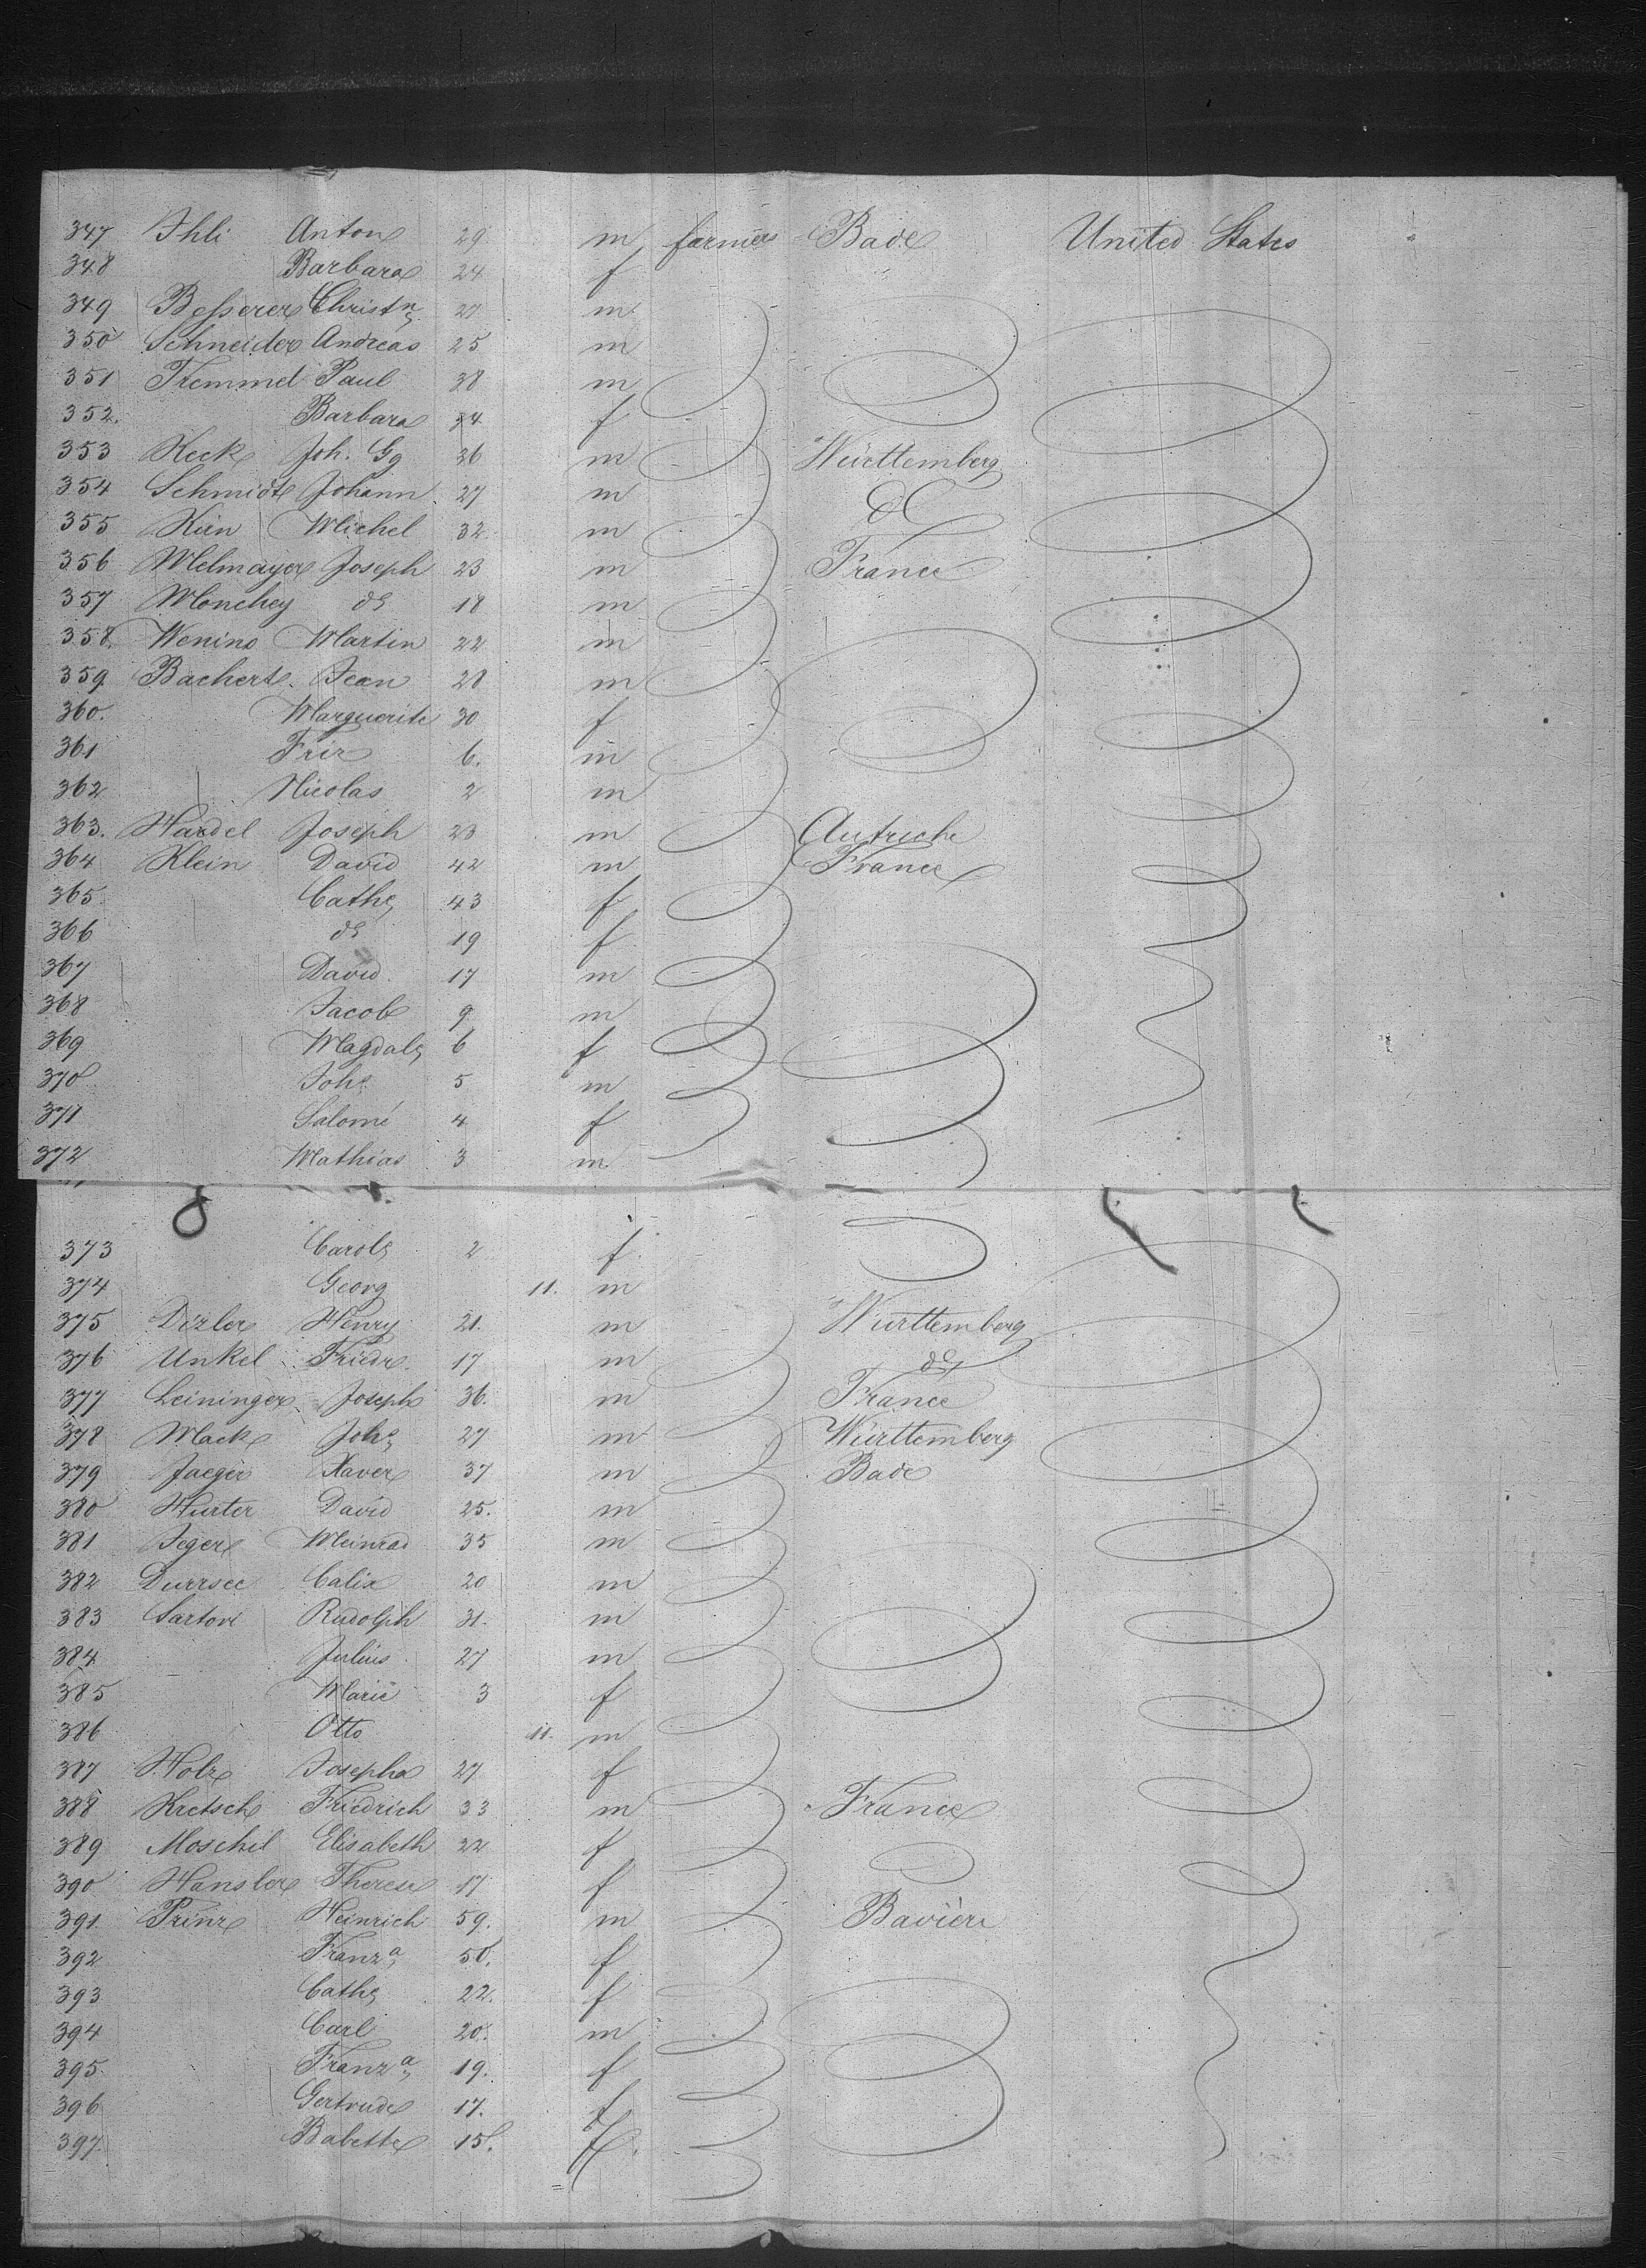 347 Ihli Anton 29 m farmers Bade United States
348 Barbara 24 f
349 Besserer Christn 27 m
350 Schneider Andreas 25 m
351 Tremmel Paul 38 m
352. Barbara 34 f
353 Keck Joh. Gg 36 m Württemberg
354 Schmidt Johann 27 m do
355 Kün Michel 32 m
356 Melmayer Joseph 23 m France
357 Monchey do 18 m
358. Wenins Martin 22 m
359 Bachert Jean 28 m
360. Marguerite 30 f
361 Friz 6. m
362 Nicolas 2 m
363. Hardel Joseph 23 m Autriche
364 Klein David 42 m France
365. Cathe 43 f
366 do 19 f
367 David 17 m
368 Jacob 9 m
369 Magdale 6 f
370 Johs 5 m
371 Salomé 4 f
372 Mathias 3 m
373 Carole 2 f
374 Georg 11. m
375 Dizler Henry 21. m Württemberg
376 Unkel Friedr. 17 m do
377 Leininger Joseph 36. m France
378 Mack Johs 27 m Württemberg
379 Jaeger Xaver 37 m Bade
380 Hurter David 25. m
381 Jeger Meinrad 35 m
382 Durrsee Calix 20 m
383 Sartori Rudolph 31. m
384 Julius 27 m
385 Marie 3 f
386 Otto 11. m
387 Holz Josepha 27 f
388 Kretsch Friedrich 33 m France
389 Moschel Elisabeth 22 f
390 Hansler Therese 17 f
391. Prinz Heinrich 59. m Bavière
392 Franza 50. f
393 Cathe 22. f
394 Carl 20. m
395. Franza 19. f
396 Gertrude 17. f
397. Babette 15. f.